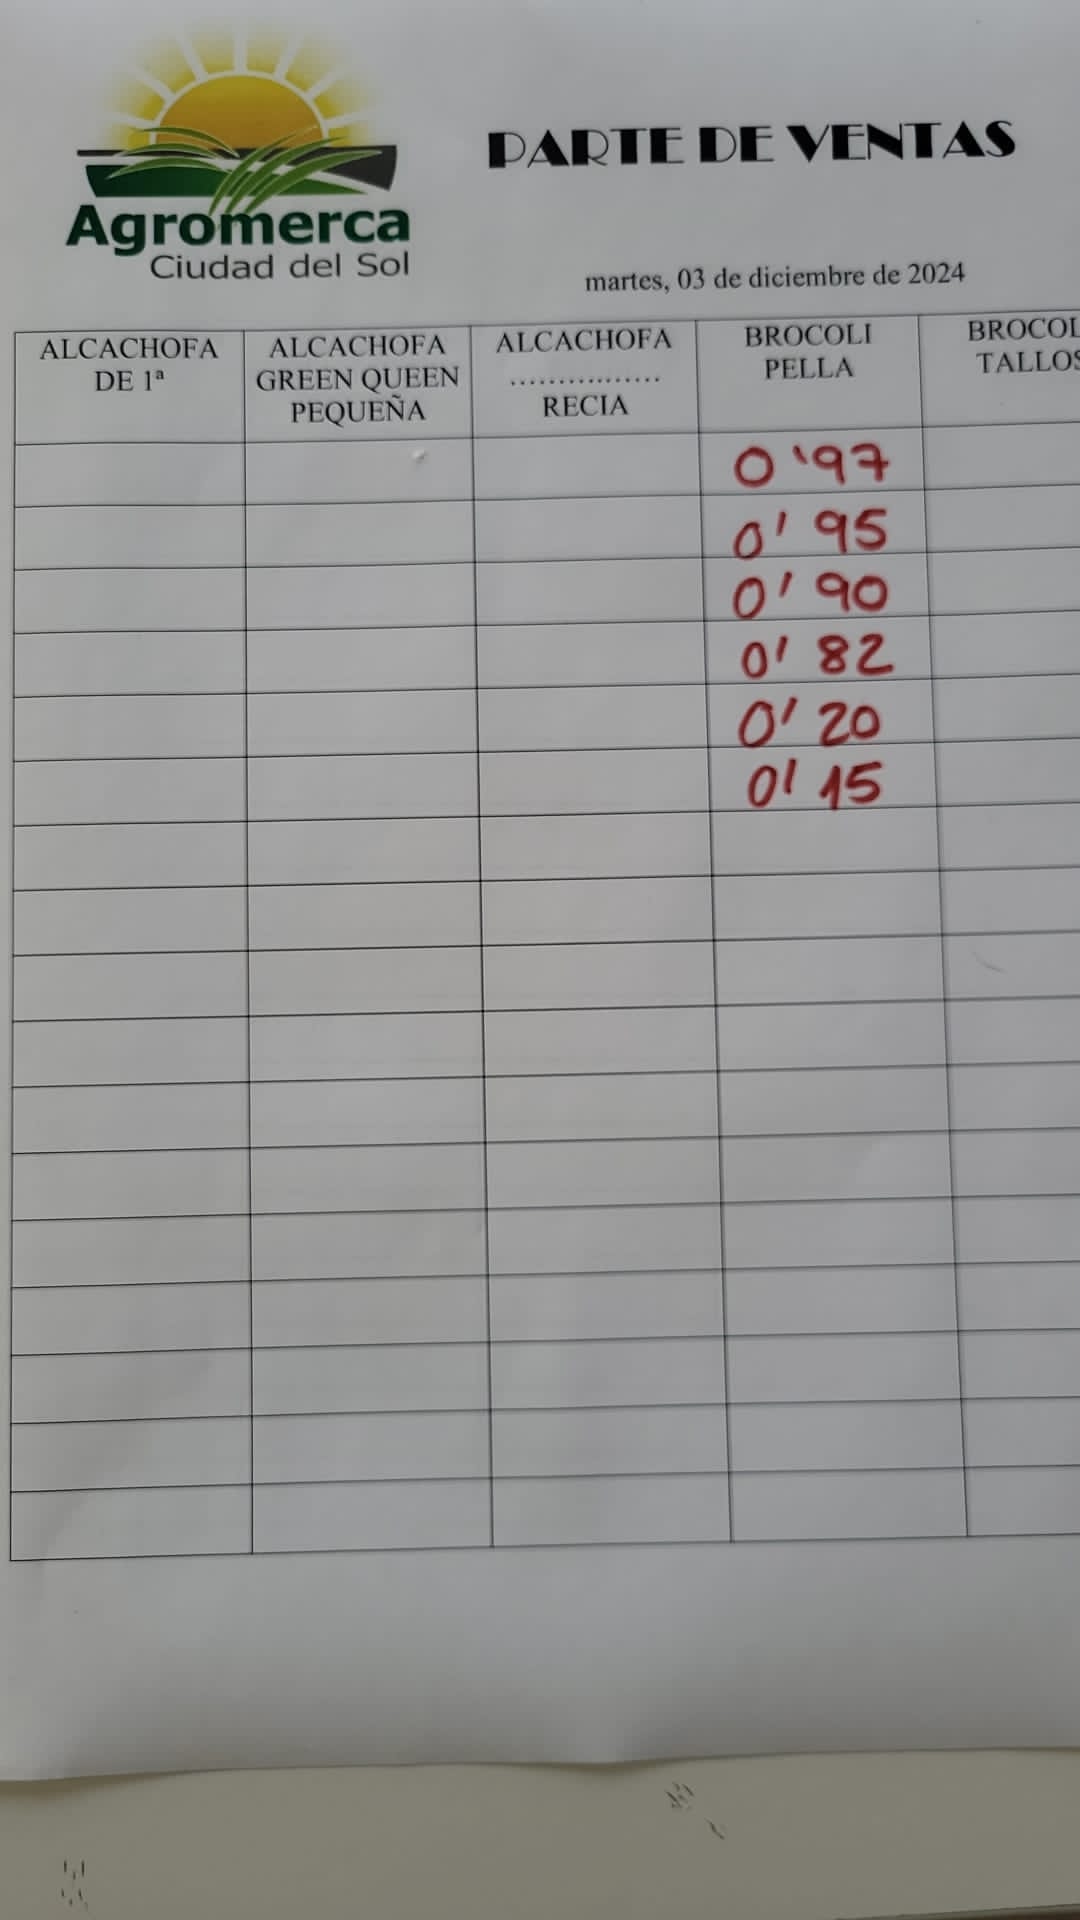 PARTE DE VENTAS
Agromerca
Ciudad del Sol
martes, 03 de diciembre de 2024
ALCACHOFA DE 1ª
ALCACHOFA GREEN QUEEN PEQUEÑA
ALCACHOFA ............... RECIA
BROCOLI PELLA
BROCOL TALLOS
0'97
0'95
0'90
0'82
0'20
0'15